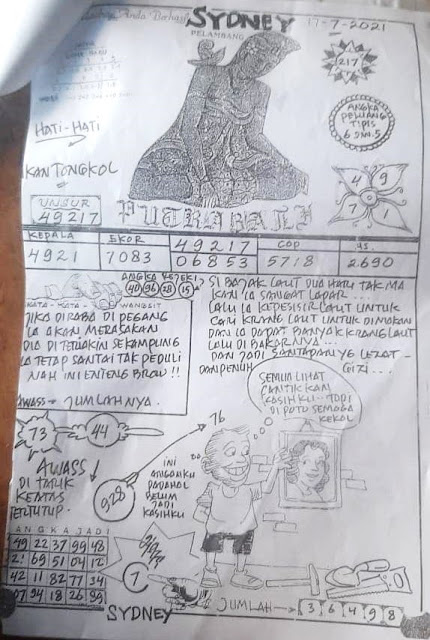 Anda Berhasil
SYDNEY
17-7-2021
PELAMBANG
217
HATI-HATI
ANGKA
PELUANG
TIPIS
KAN TONGKOL
4 9
7 1
UNSUR
49217
KEPALA EKOR 49217 COP AS
4921 7083 06853 5718 2690
ANGKA REJEKI
40 96 28 15
KATA-KATA WANGSIT
JIKA DIRABA DI PEGANG
IA AKAN MERASAKAN
DIA DI TERIAKIN SEKAMPUNG
IA TETAP SANTAI TAK PEDULI
NAH INI ENTENG BROW !!
AWASS = JUMLAHNYA.
SI BAJAK LAUT DUA HARI TAK MA
KAN IA SANGAT LAPAR...
LALU IA KEPESISIR LAUT UNTUK
CARI KRANG LAUT UNTUK DIMAKAN
DAN IA DAPAT BANYAK KRANG LAUT
LALU DI BAKARNYA...
DAN JADI SANTAPAN YG LEZAT -
DAN PENUH GIZI...
SEMUA LIHAT
CANTIK KAN
KASIHKU... JADI
DI FOTO SEMOGA
KEKAL
73
44
76
AWASS
DI TARIK
KEATAS
TERTUTUP.
928
INI
ANGANKU
PADAHAL
BELUM
JADI
KASIHKU
ANGKA JADI
49 22 37 99 48
69 51 04 12
42 11 82 77 34
94 18 26
7
SYDNEY
JUMLAH
3 6 4 9 8